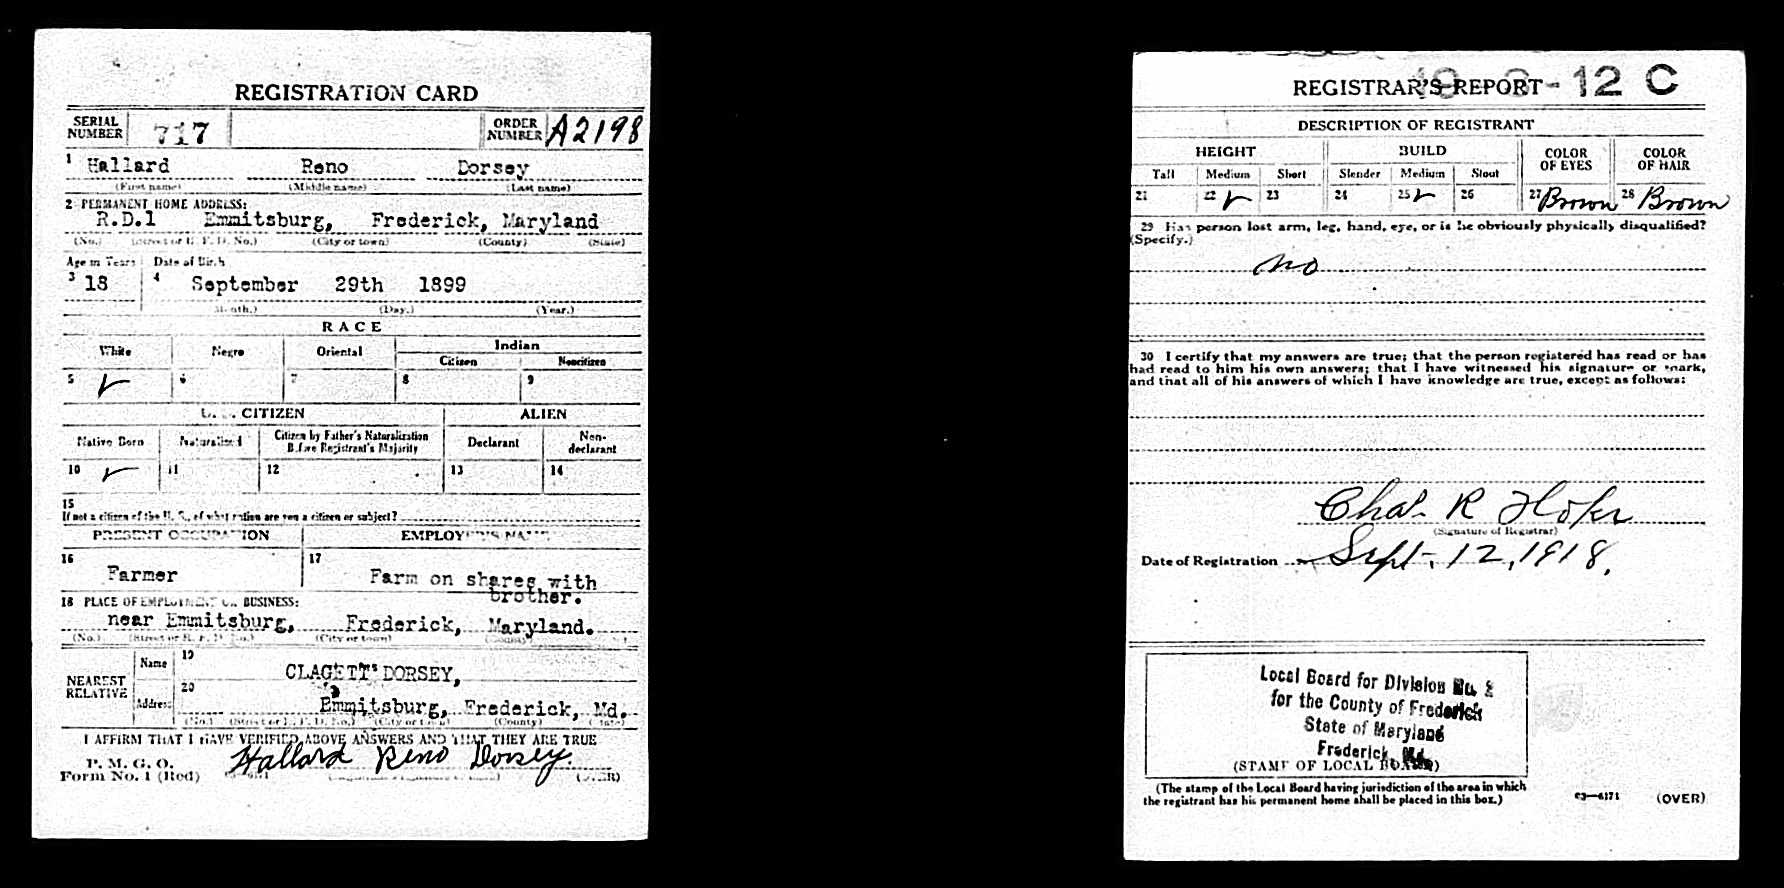 REGISTRATION CARD
SERIAL NUMBER 717 ORDER NUMBER A2198
1 Hallard Reno Dorsey
(First name) (Middle name) (Last name)
2 PERMANENT HOME ADDRESS:
R.D.1 Emmitsburg, Frederick, Maryland
(No.) (Street or R. F. D. No.) (City or town) (County) (State)
Age in Years Date of Birth
3 18 4 September 29th 1899
(Month.) (Day.) (Year.)
RACE
White Negro Oriental Indian
Citizen Noncitizen
5 ✓ 6 7 8 9
U. S. CITIZEN ALIEN
Native Born Naturalized Citizen by Father's Naturalization Before Registrant's Majority Declarant Non-declarant
10 ✓ 11 12 13 14
15
If not a citizen of the U. S., of what nation are you a citizen or subject?
PRESENT OCCUPATION EMPLOYER'S NAME
16 Farmer 17 Farm on shares with
brother.
18 PLACE OF EMPLOYMENT OR BUSINESS:
near Emmitsburg, Frederick, Maryland.
(No.) (Street or R. F. D. No.) (City or town) (County)
NEAREST RELATIVE Name 19 CLAGETT DORSEY,
Address 20 Emmitsburg, Frederick, Md.
(No.) (Street or R. F. D. No.) (City or town) (County) (State)
I AFFIRM THAT I HAVE VERIFIED ABOVE ANSWERS AND THAT THEY ARE TRUE
P. M. G. O.
Form No. 1 (Red) Hallard Reno Dorsey (OVER)
REGISTRAR'S REPORT -12 C
DESCRIPTION OF REGISTRANT
HEIGHT BUILD COLOR OF EYES COLOR OF HAIR
Tall Medium Short Slender Medium Stout
21 22 ✓ 23 24 25 ✓ 26 27 Brown 28 Brown
29 Has person lost arm, leg, hand, eye, or is he obviously physically disqualified?
(Specify.)
no
30 I certify that my answers are true; that the person registered has read or has
had read to him his own answers; that I have witnessed his signature or mark,
and that all of his answers of which I have knowledge are true, except as follows:
Chas. R Hoke
(Signature of Registrar)
Date of Registration Sept. 12, 1918.
Local Board for Division No. 2
for the County of Frederick
State of Maryland
Frederick, Md.
(STAMP OF LOCAL BOARD)
(The stamp of the Local Board having jurisdiction of the area in which
the registrant has his permanent home shall be placed in this box.)
03—6171 (OVER)